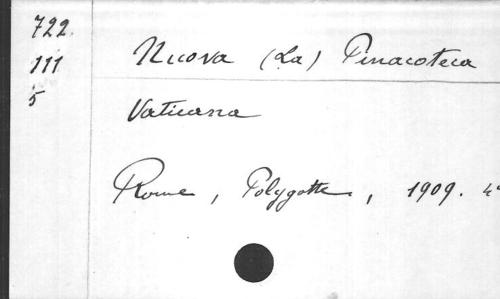 722.
111 Nuova (La) Pinacoteca
5 Vaticana
Rome, Polygotte, 1909. 4°